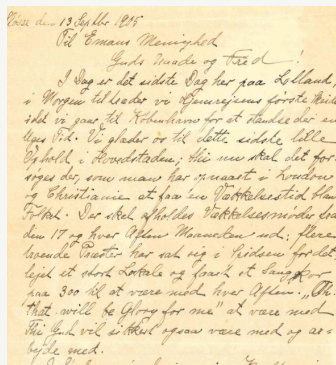 den 13 Septbr 1905
Til Emaus Menighed
Guds Naade og Fred!
I Dag er det sidste Dag her paa Lolland,
i Morgen tiltræder vi Hjemrejsens første
idet vi gaar til København for at standse der en
Uges Tid. Vi glæder os til dette sidste lille
Ophold i Hovedstaden; thi nu skal det for-
søges der, som man har opnaaet i London
og Christiania at faa en Vækkelsestid blan
Folket. Der skal afholdes Vækkelsesmøder
den 17 og hver Aften Maaneden ud; flere
troende Præster har sat sig i Spidsen for det
lejet et stort Lokale og faaet et Sangkor
paa 300 til at være med hver Aften. „
that will be Glory for me" at være med
Thi Gud vil sikkert ogsaa være med og ar-
bejde med.